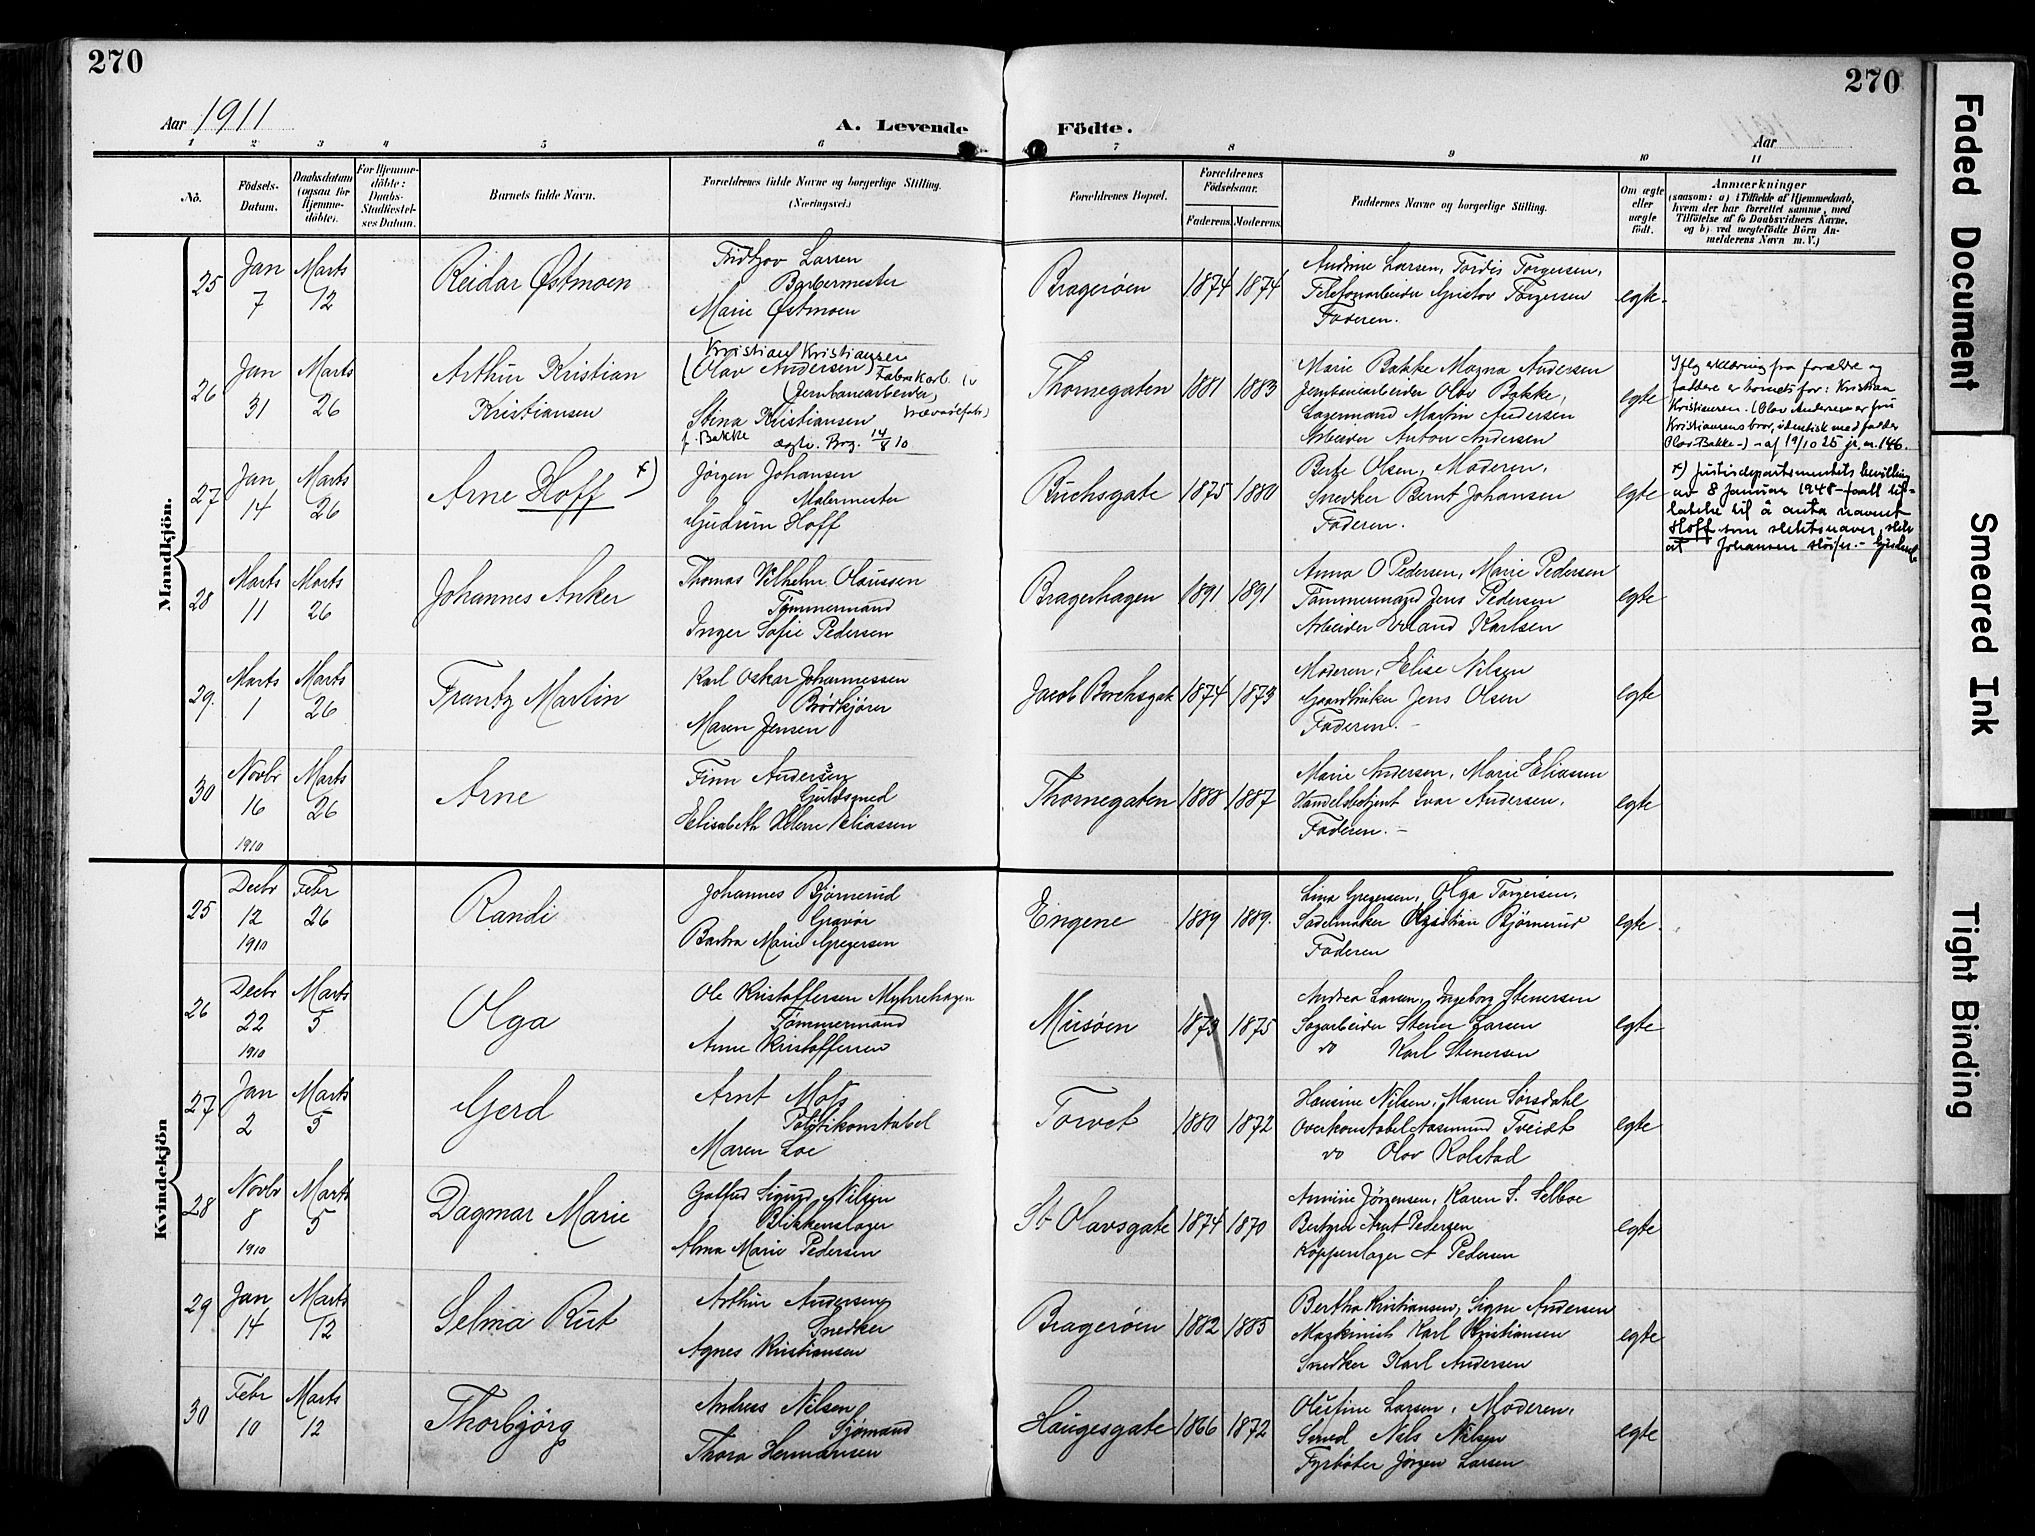 270
270
Aar 1911
A. Levende Födte.
Aar
1 2 3 4 5 6 7 8 9 10 11
No.
Födsels-Datum.
Daabsdatum (ogsaa for Hjemme-döbte).
For Hjemme-döbte: Daabs-Stadfæstel-ses Datum.
Barnets fulde Navn.
Forældrenes fulde Navne og borgerlige Stilling.
(Næringsvei.)
Forældrenes Bopæl.
Forældrenes Födselsaar.
Faderens. Moderens.
Faddernes Navne og borgerlige Stilling.
Om ægte eller uægte födt.
Anmærkninger
(saasom: a) i Tilfælde af Hjemmedaab,
hvem der har forrettet samme, med
Tilföielse af to Daabsvidners Navne,
og b) ved uægtefödte Börn An-
melderens Navn m. V.)
Mandkjön.
25 Jan 7 Marts 12 Reidar Østmoen
Fridtjov Larsen
Barbermester
Marie Østmoen
Bragerøen 1874 1874
Andrine Larsen, Tordis Torgersen,
Telefonarbeider Gustav Torgersen
Faderen.
egte.
26 Jan 31 Marts 26 Arthur Kristian
Kristiansen
Kristian Kristiansen
(Olav Andersen) Fabrkarl.
(Jernbanearbeider)
Stina Kristiansen
f. Bakke ægtv. Brag. 14/8 10
Thornegaten 1881 1883
Marie Bakke Magna Andersen
Jernbanearbeider Olav Bakke,
Lagermand Martin Andersen
Arbeider Anton Andersen
egte
Iflg erklæring fra forældre og
faddere er barnets far: Kristian
Kristiansen. (Olav Andersen er fru
Kristiansens bror, identisk med fadder
Olav Bakke-) - af 19/10 25 jr. nr. 146.
27 Jan 14 Marts 26 Arne Hoff x)
Jørgen Johansen
Malermester
Gudrun Hoff
Buchsgate 1875 1880
Berte Olsen, Moderen,
Snedker Bernt Johansen
Faderen.
egte
x) Justisdepartementets bevilling
av 8 Januar 1948
latelse til å anta navnet
Hoff som slektsnavn, slik
at Johansen sløifes.
28 Marts 11 Marts 26 Johannes Anker
Thomas Vilhelm Olaussen
Tømmermand
Inger Sofie Pedersen
Bragerhagen 1891 1891
Anna O Pedersen, Marie Pedersen
Tømmermand Jens Pedersen
Arbeider Erland Karlsen
egte
29. Marts 1 Marts 26 Frantz Martin
Karl Oskar Johannessen
Brødkjører
Maren Jensen
Jacob Borchsgate 1874 1873
Moderen, Elise Nilsen
Gaardbruker Jens Olsen
Faderen.-
egte
30 Novbr 16 1910 Marts 26 Arne
Finn Andersen
Guldsmed
Elisabeth Helene Eliassen
Thornegaten 1888 1887
Marie Andersen, Marie Eliassen
Handelsbetjent Ivar Andersen,
Faderen.-
egte
Kvindekjön
25 Decbr 12 1910 Febr 26 Randi
Johannes Bjørnerud
Gravør
Barbra Marie Gregersen
Engene 1889 1889.
Lina Gregersen, Olga Torgersen,
Sadelmaker Kristian Bjørnerud
Faderen
egte.
26 Decbr 22 1910 Marts 5 Olga
Ole Kristoffersen Myhrehagen
Tømmermand
Anne Kristoffersen
Musøen 1873 1875
Andrea Larsen, Ingeborg Stenersen
Sagarbeider Stener Larsen
do Karl Stenersen
egte
27 Jan 2 Marts 5 Gerd
Arnt Mots
Politikonstabel
Maren Loe
Torvet 1880 1872
Hansine Nilsen, Maren Sørsdahl
Overkonstabel Aasmund Tveidt
do Olav Rolstad
egte
28 Novbr 8 1910 Marts 5 Dagmar Marie
Gotfred Sigurd Nilsen
Blikkenslager
Alma Marie Pedersen
St. Olavsgate 1874 1870
Annine Jörgensen, Karen S. Selboe
Arnt Pedersen
Kopperslager A Pedersen
egte
29 Jan 14 Marts 12 Selma Rut
Arthur Andersen
Snedker
Agnes Kristiansen
Bragerøen 1882 1885
Bertha Kristiansen, Signe Andersen
Maskinist Karl Kristiansen
Snedker Karl Andersen
egte
30 Febr 10 Marts 12 Thorbjørg
Andreas Nilsen
Sjømand
Thora Hermansen
Haugesgate 1866 1872
Olustine Larsen, Moderen,
Smed Nils Nilsen
Fyrbøter Jørgen Larsen
egte
Faded Document
Smeared Ink
Tight Binding